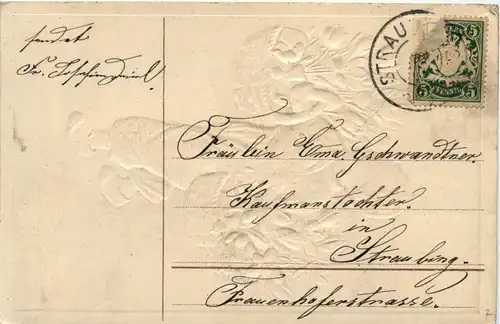 sendet
Fr.
STRAU
5 5
PFENNIG
Fräulein Ema Gschwandtner.
Kaufmannstochter.
in
Straubing.
Frauenhoferstrasse.
7